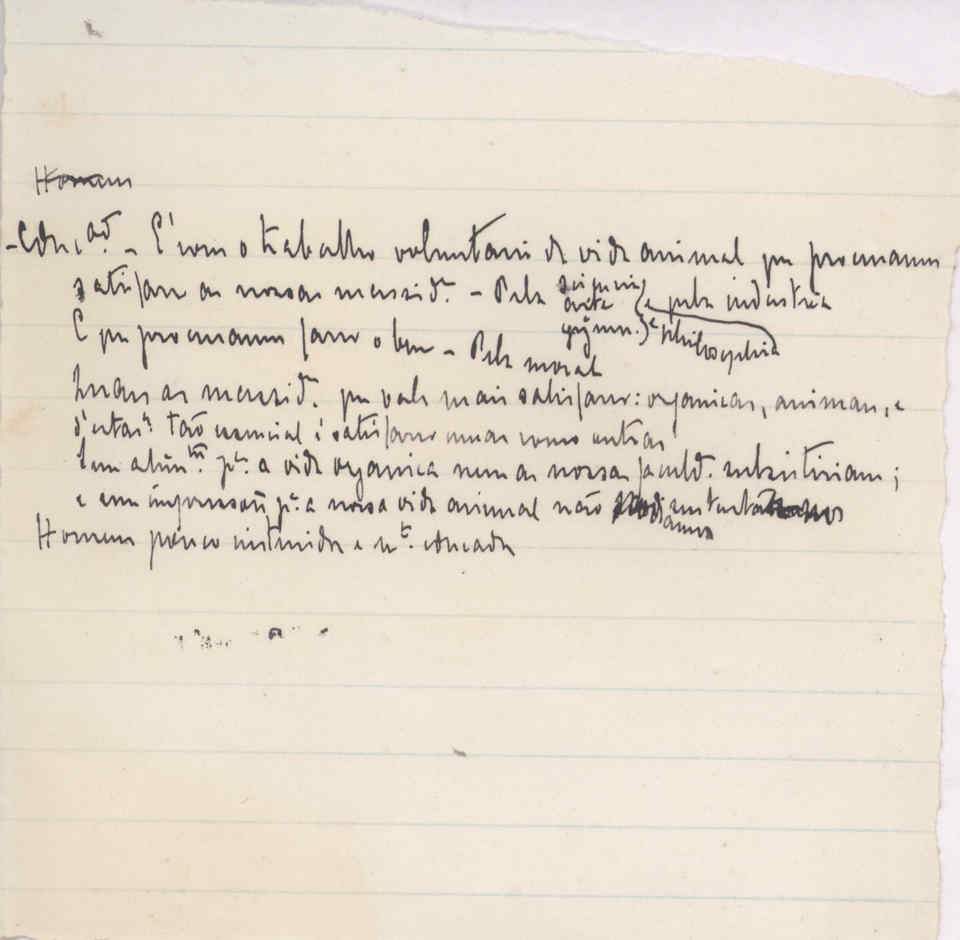 Homem
- Educaç. - É com o trabalho voluntario da vida animal que procuramos
satisfazer as nossas necessid.es - Pela sciencia e pela industria
arte
gymn. e philosophia
E que procuramos fazer o bem - Pela moral
Quaes as necessid.es que vale mais satisfazer: organicas, animaes, e
d'estas? Tão essencial é satisfazer umas como outras
Sem alim.tos p.a a vida organica nem as nossas faculd. subsistiriam;
e sem impressões p.a a nossa vida animal não
Homem pouco instruido e m.to educado